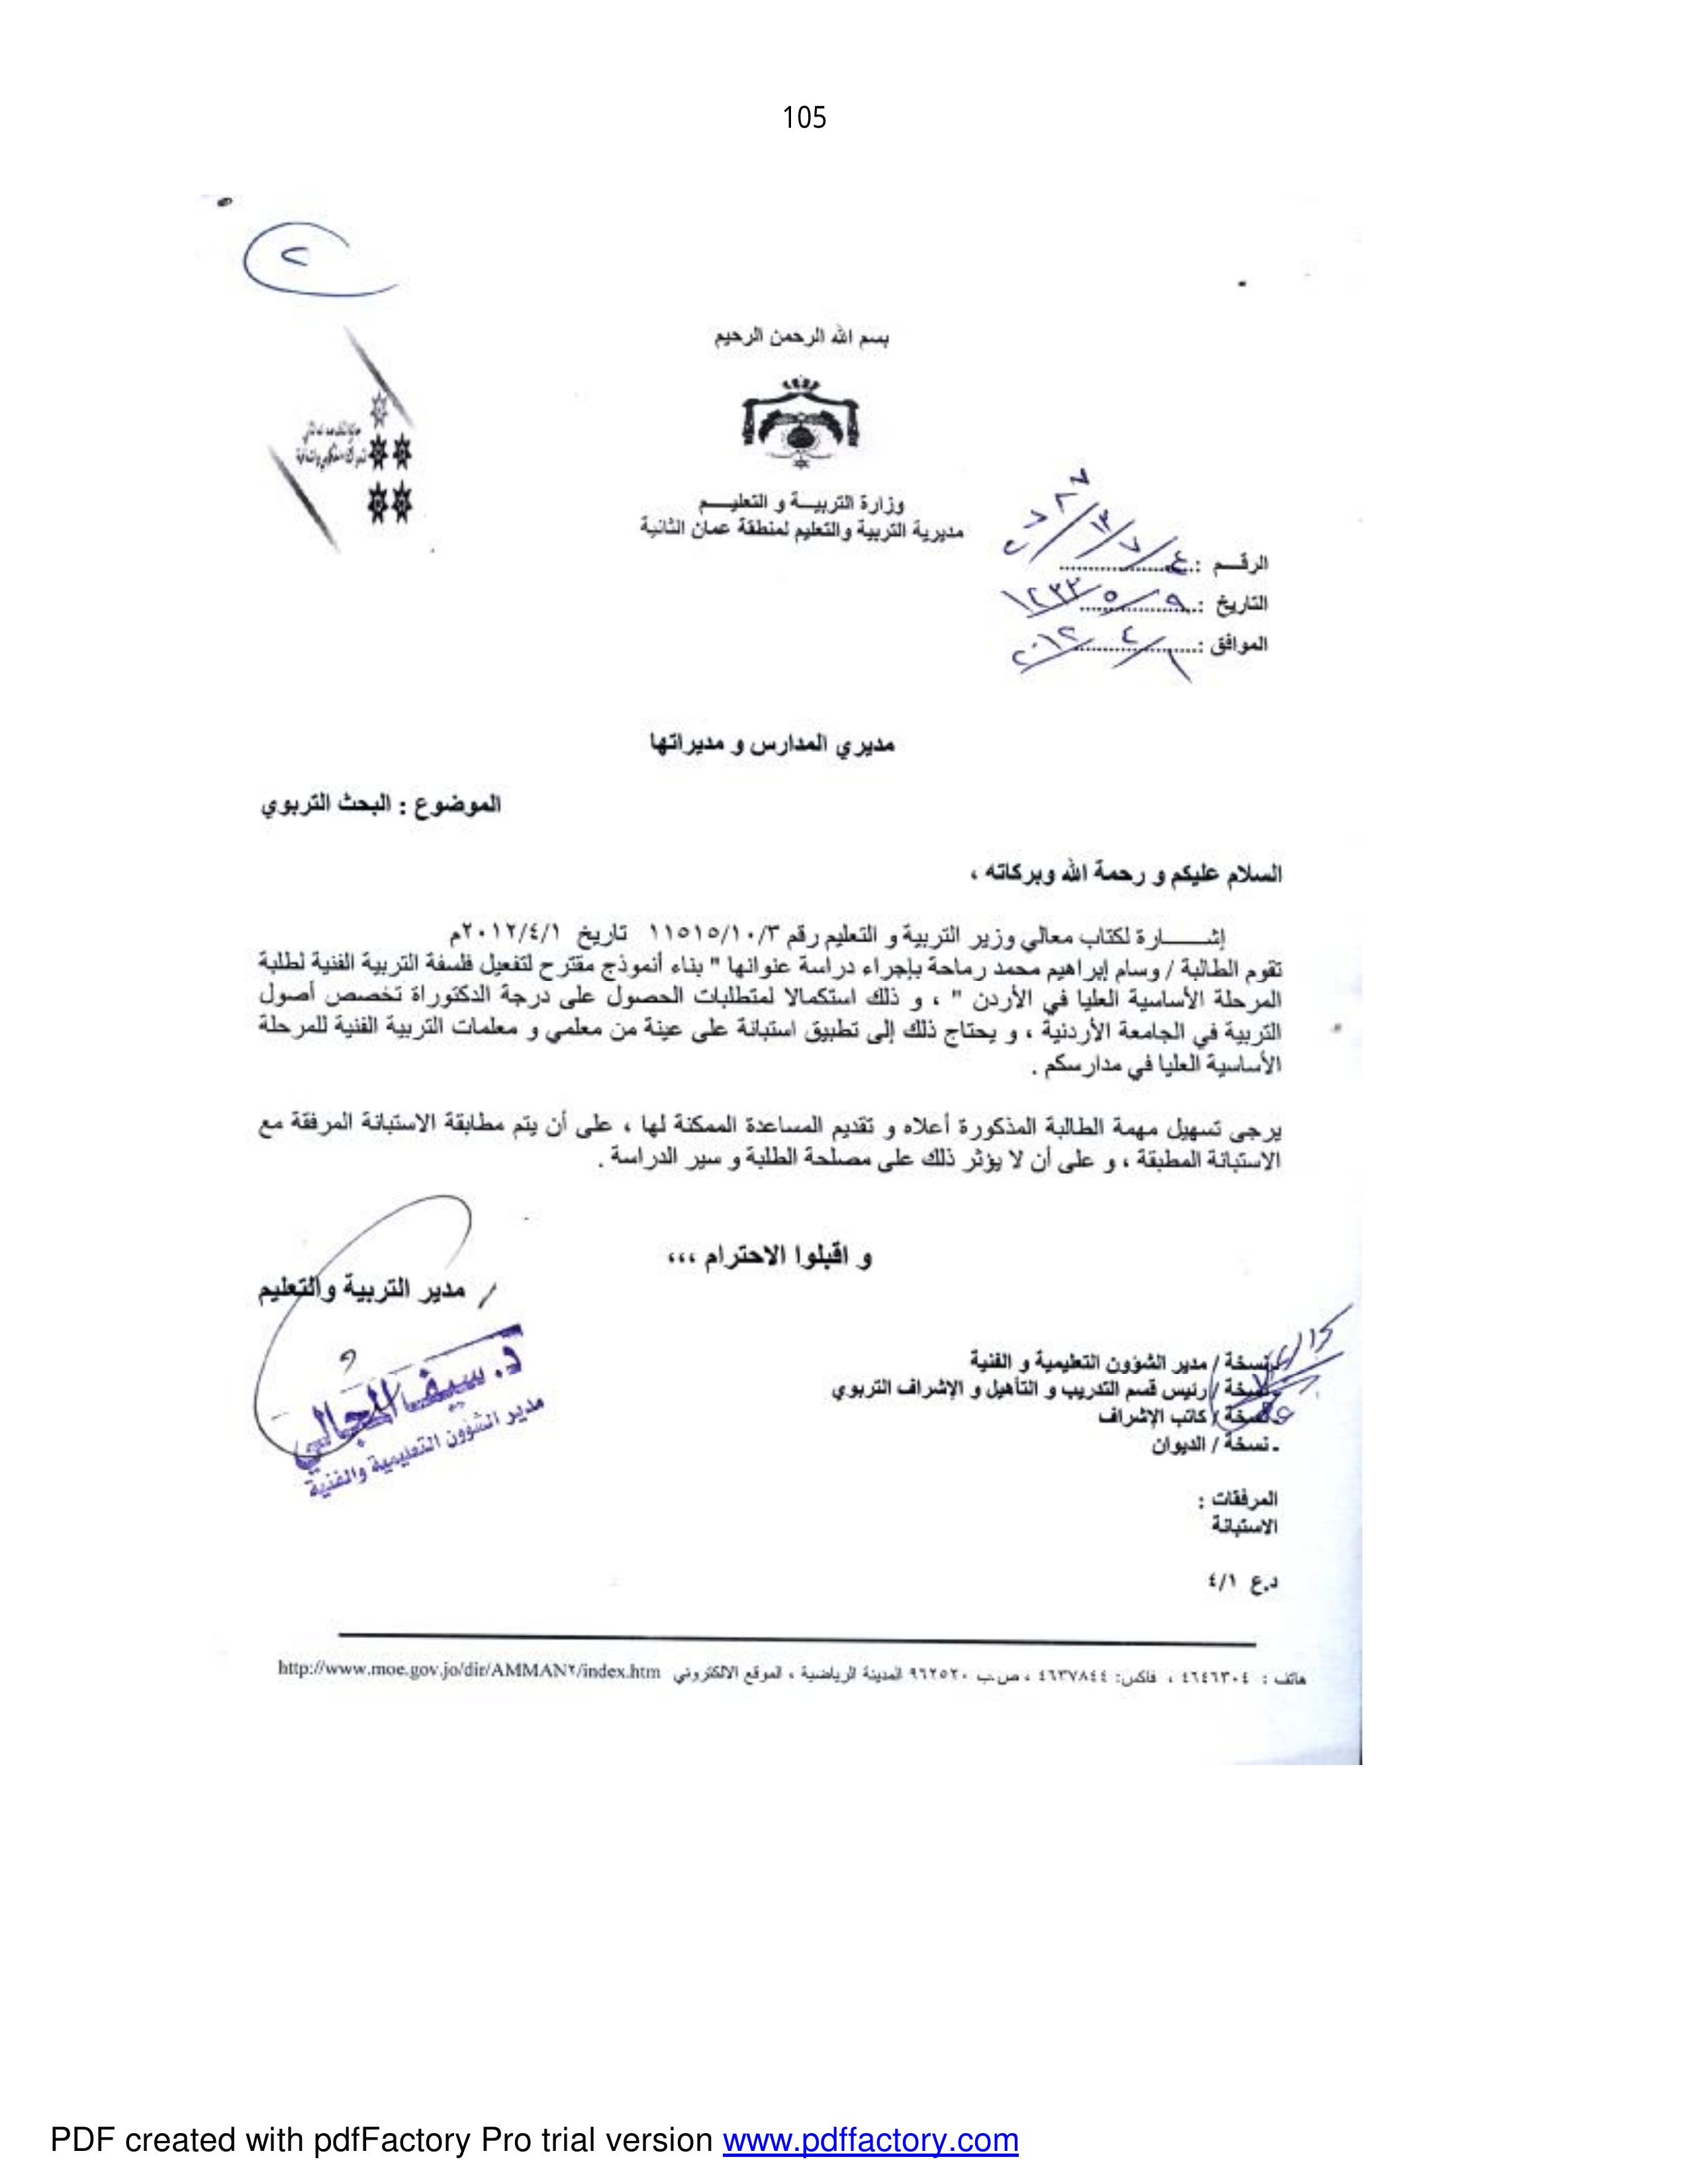 105
٢
بسم الله الرحمن الرحيم
وزارة التربيـــة و التعليـــم
مديرية التربية والتعليم لمنطقة عمان الثانية
الرقـــم :
التاريخ : ٩/٥/١٤٣٣
الموافق : ١/٤/٢٠١٢
مديري المدارس و مديراتها
الموضوع : البحث التربوي
السلام عليكم و رحمة الله وبركاته ،
إشـــــارة لكتاب معالي وزير التربية و التعليم رقم ١١٥١٥/١٠/٣ تاريخ ٢٠١٢/٤/١م
تقوم الطالبة / وسام إبراهيم محمد رماحة بإجراء دراسة عنوانها " بناء أنموذج مقترح لتفعيل فلسفة التربية الفنية لطلبة
المرحلة الأساسية العليا في الأردن " ، و ذلك استكمالا لمتطلبات الحصول على درجة الدكتوراة تخصص أصول
التربية في الجامعة الأردنية ، و يحتاج ذلك إلى تطبيق استبانة على عينة من معلمي و معلمات التربية الفنية للمرحلة
الأساسية العليا في مدارسكم .
يرجى تسهيل مهمة الطالبة المذكورة أعلاه و تقديم المساعدة الممكنة لها ، على أن يتم مطابقة الاستبانة المرفقة مع
الاستبانة المطبقة ، و على أن لا يؤثر ذلك على مصلحة الطلبة و سير الدراسة .
و اقبلوا الاحترام ،،،
/ مدير التربية والتعليم
د. سيف المجالي
مدير الشؤون التعليمية والفنية
نسخة / مدير الشؤون التعليمية و الفنية
نسخة / رئيس قسم التدريب و التأهيل و الإشراف التربوي
نسخة / كاتب الإشراف
- نسخة / الديوان
المرفقات :
الاستبانة
د.ع ٤/١
هاتف : ٤٦٤٦٣٠٤ ، فاكس: ٤٦٣٧٨٤٤ ، ص.ب ٩٦٢٥٢٠ المدينة الرياضية ، الموقع الالكتروني http://www.moe.gov.jo/dir/AMMAN٢/index.htm
PDF created with pdfFactory Pro trial version www.pdffactory.com